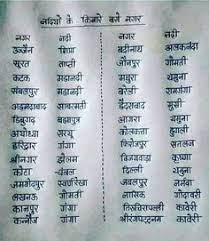 नदियों के किनारे बसे नगर
नगर नदी नगर नदी
उज्जैन शिप्रा बद्रीनाथ अलकनंदा
सूरत ताप्ती जौनपुर गोमती
कटक महानदी मथुरा यमुना
संबलपुर महानदी बरेली रामगंगा
अहमदाबाद साबरमती हैदराबाद मूसी
डिब्रूगढ़ ब्रह्मपुत्र आगरा यमुना
अयोध्या सरयू कोलकत्ता हुगली
हरिद्वार गंगा फिरोजपुर सतलज
श्रीनगर झेलम विजयवाड़ा कृष्णा
कोटा चंबल दिल्ली यमुना
जमशेदपुर स्वर्णरेखा जबलपुर नर्मदा
लखनऊ गोमती नासिक गोदावरी
कानपुर गंगा कावेरी
कन्नौज गंगा कावेरी